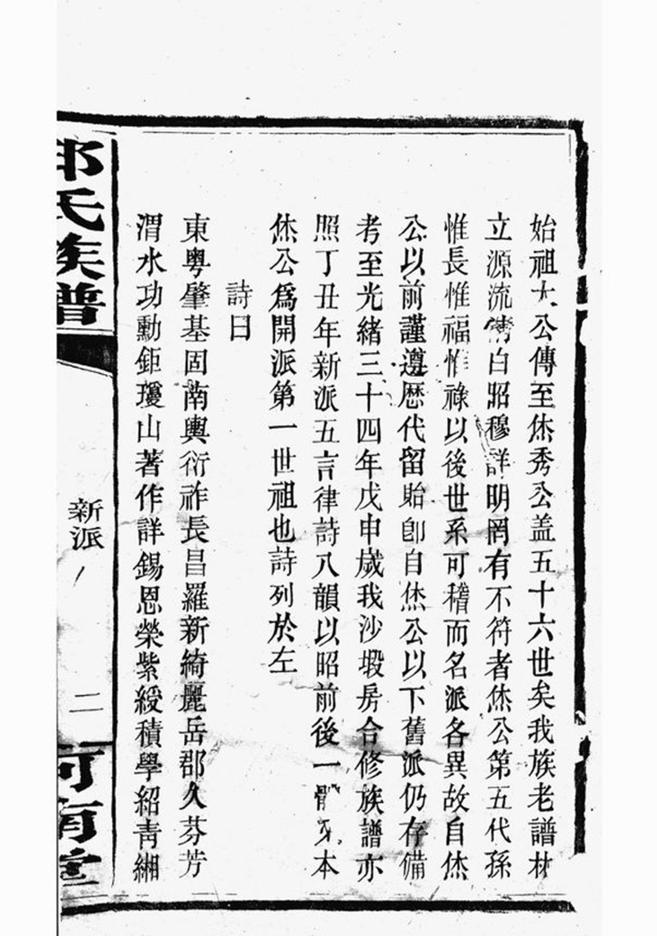 始祖太公傳至烋秀公盖五十六世矣我族老譜材
立源流清白昭穆詳明罔有不符者烋公第五代孫
惟長惟福惟祿以後世系可稽而名派各異故自烋
公以前謹遵歷代留貽卽自烋公以下舊派仍存備
考至光緒三十四年戊申歲我沙塅房合修族譜亦
照丁丑年新派五言律詩八韻以昭前後一體 本
烋公爲開派第一世祖也詩列於左
詩曰
東粵肇基固南輿衍祚長昌羅新綺麗岳郡久芬芳
渭水功勳鉅瓊山著作詳錫恩榮紫綬積學紹靑緗
氏族譜
新派
二
河南堂